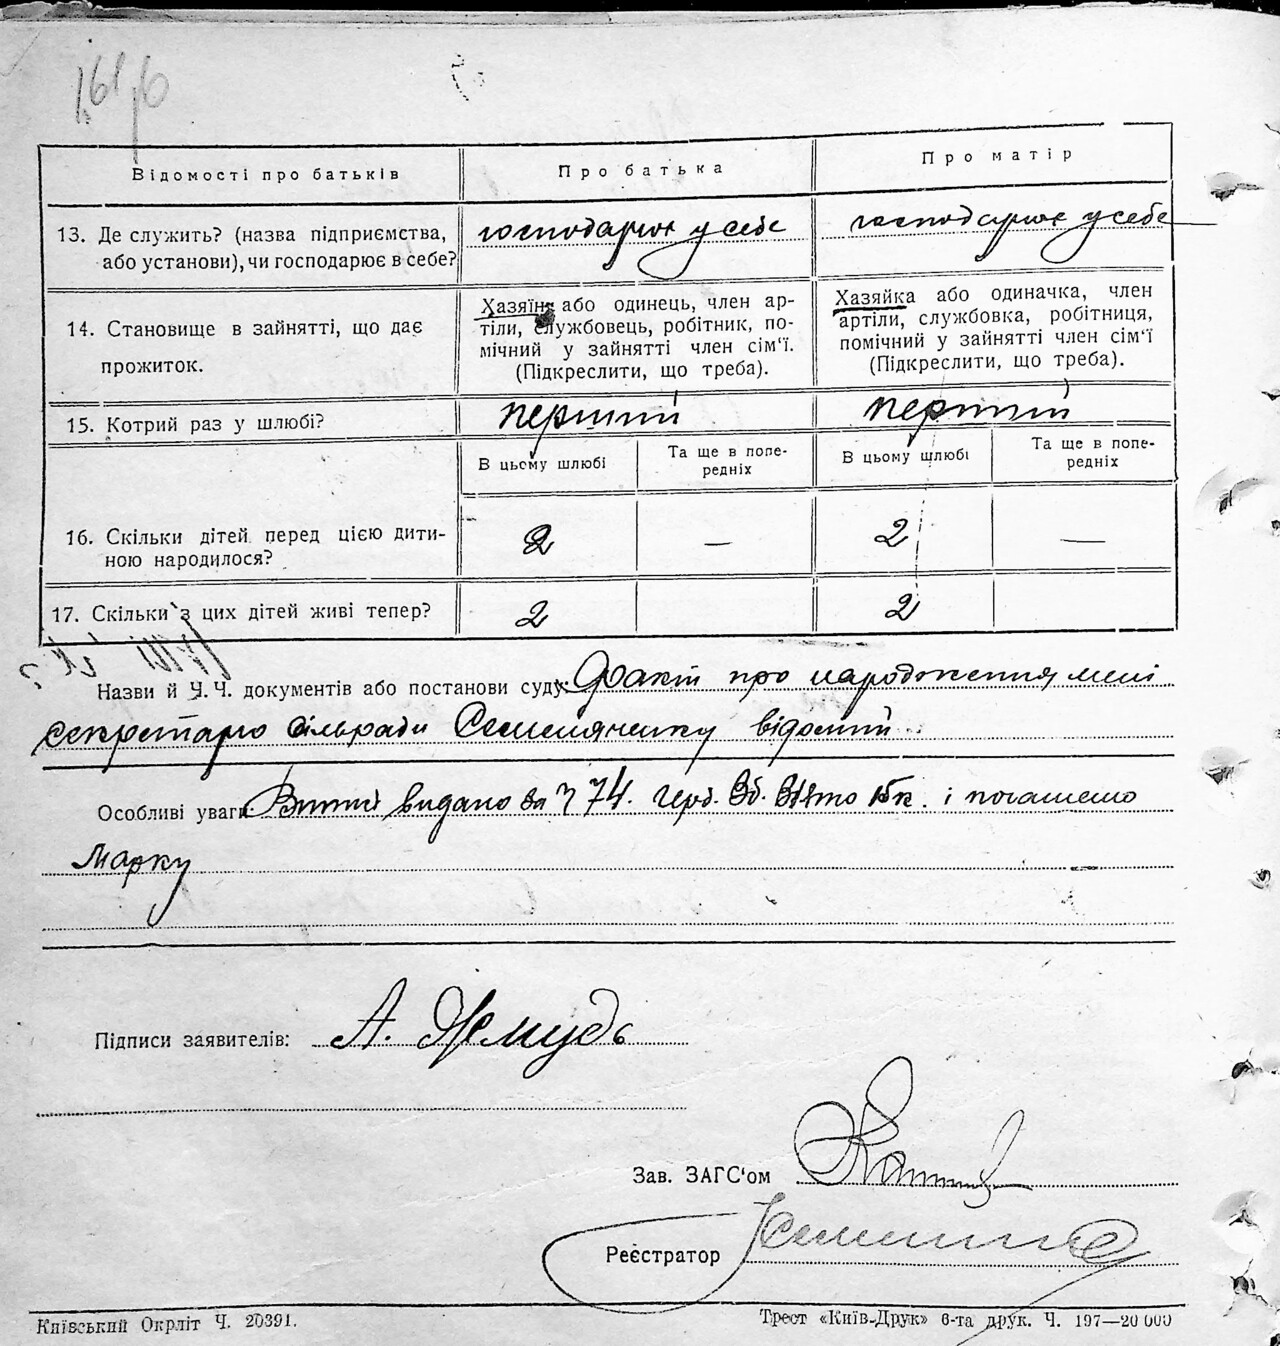 Відомості про батьків Про батька Про матір
13. Де служить? (назва підприємства, або установи), чи господарює в себе? господарює у себе господарює у себе
14. Становище в зайнятті, що дає прожиток.
Хазяїн або одинець, член ар-
тіли, службовець, робітник, по-
мічний у зайнятті член сім'ї.
(Підкреслити, що треба).
Хазяйка або одиначка, член
артіли, службовка, робітниця,
помічний у зайнятті член сім'ї
(Підкреслити, що треба).
15. Котрий раз у шлюбі? перший перший
В цьому шлюбі Та ще в попе-
редніх В цьому шлюбі Та ще в попе-
редніх
16. Скільки дітей перед цією дити-
ною народилося? 2 — 2 —
17. Скільки з цих дітей живі тепер? 2 2
Назви й Ч. Ч. документів або постанови суду: Факт про народження мені
секретарю сільради Семеляченку відомий
Особливі уваги: Витяг видано за Ч 74. герб. Зб. Взято 15 к. і погашено
марку
Підписи заявителів: А. Жмудь
Зав. ЗАГС'ом
Реєстратор
Київський Окрліт Ч. 20391. Трест «Київ-Друк» 6-та друк. Ч. 197—20 000